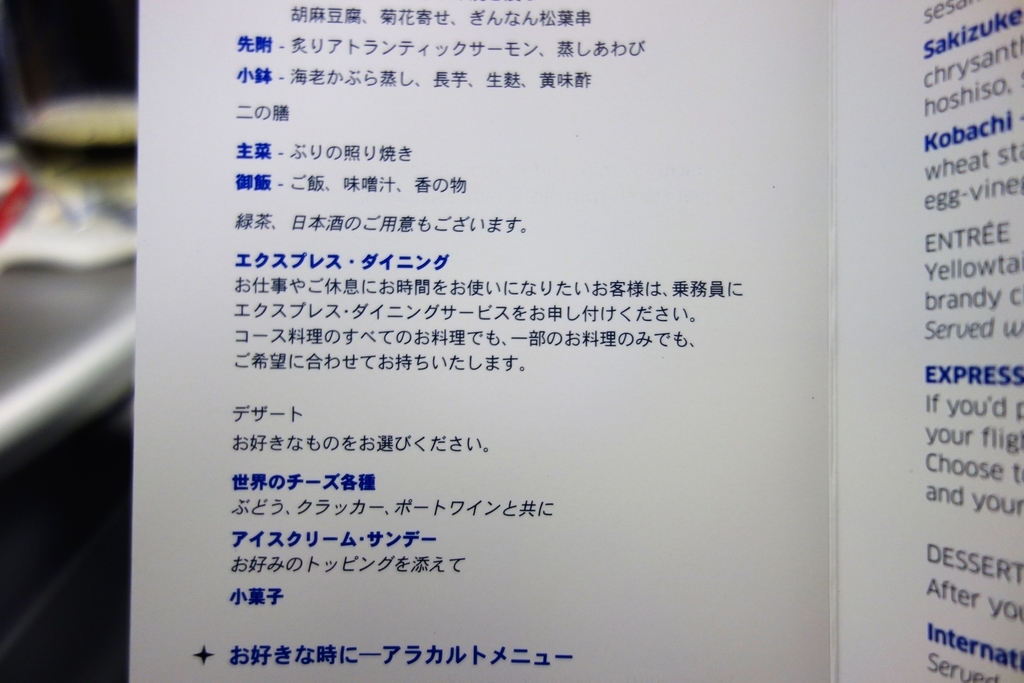 胡麻豆腐、菊花寄せ、ぎんなん松葉串
先附 - 炙りアトランティックサーモン、蒸しあわび
小鉢 - 海老かぶら蒸し、長芋、生麩、黄味酢
二の膳
主菜 - ぶりの照り焼き
御飯 - ご飯、味噌汁、香の物
緑茶、日本酒のご用意もございます。
エクスプレス・ダイニング
お仕事やご休息にお時間をお使いになりたいお客様は、乗務員に
エクスプレス・ダイニングサービスをお申し付けください。
コース料理のすべてのお料理でも、一部のお料理のみでも、
ご希望に合わせてお持ちいたします。
デザート
お好きなものをお選びください。
世界のチーズ各種
ぶどう、クラッカー、ポートワインと共に
アイスクリーム・サンデー
お好みのトッピングを添えて
小菓子
お好きな時に―アラカルトメニュー
Sakizuke
chrysanth
hoshiso,
Kobachi -
wheat sta
egg-vineg
ENTRÉE
Yellowtai
brandy c
Served w
EXPRESS
If you'd p
your flig
Choose t
and your
DESSERT
After you
Internati
Served